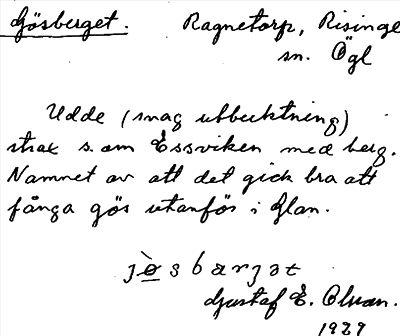 Gösberget. Ragnetorp, Risinge
sn. Ögl
Udde (svag utbucktning)
strax s. om Essviken med berg.
Namnet av att det gick bra att
fånga gös utanför i Glan.
Gustaf E. Olsson.